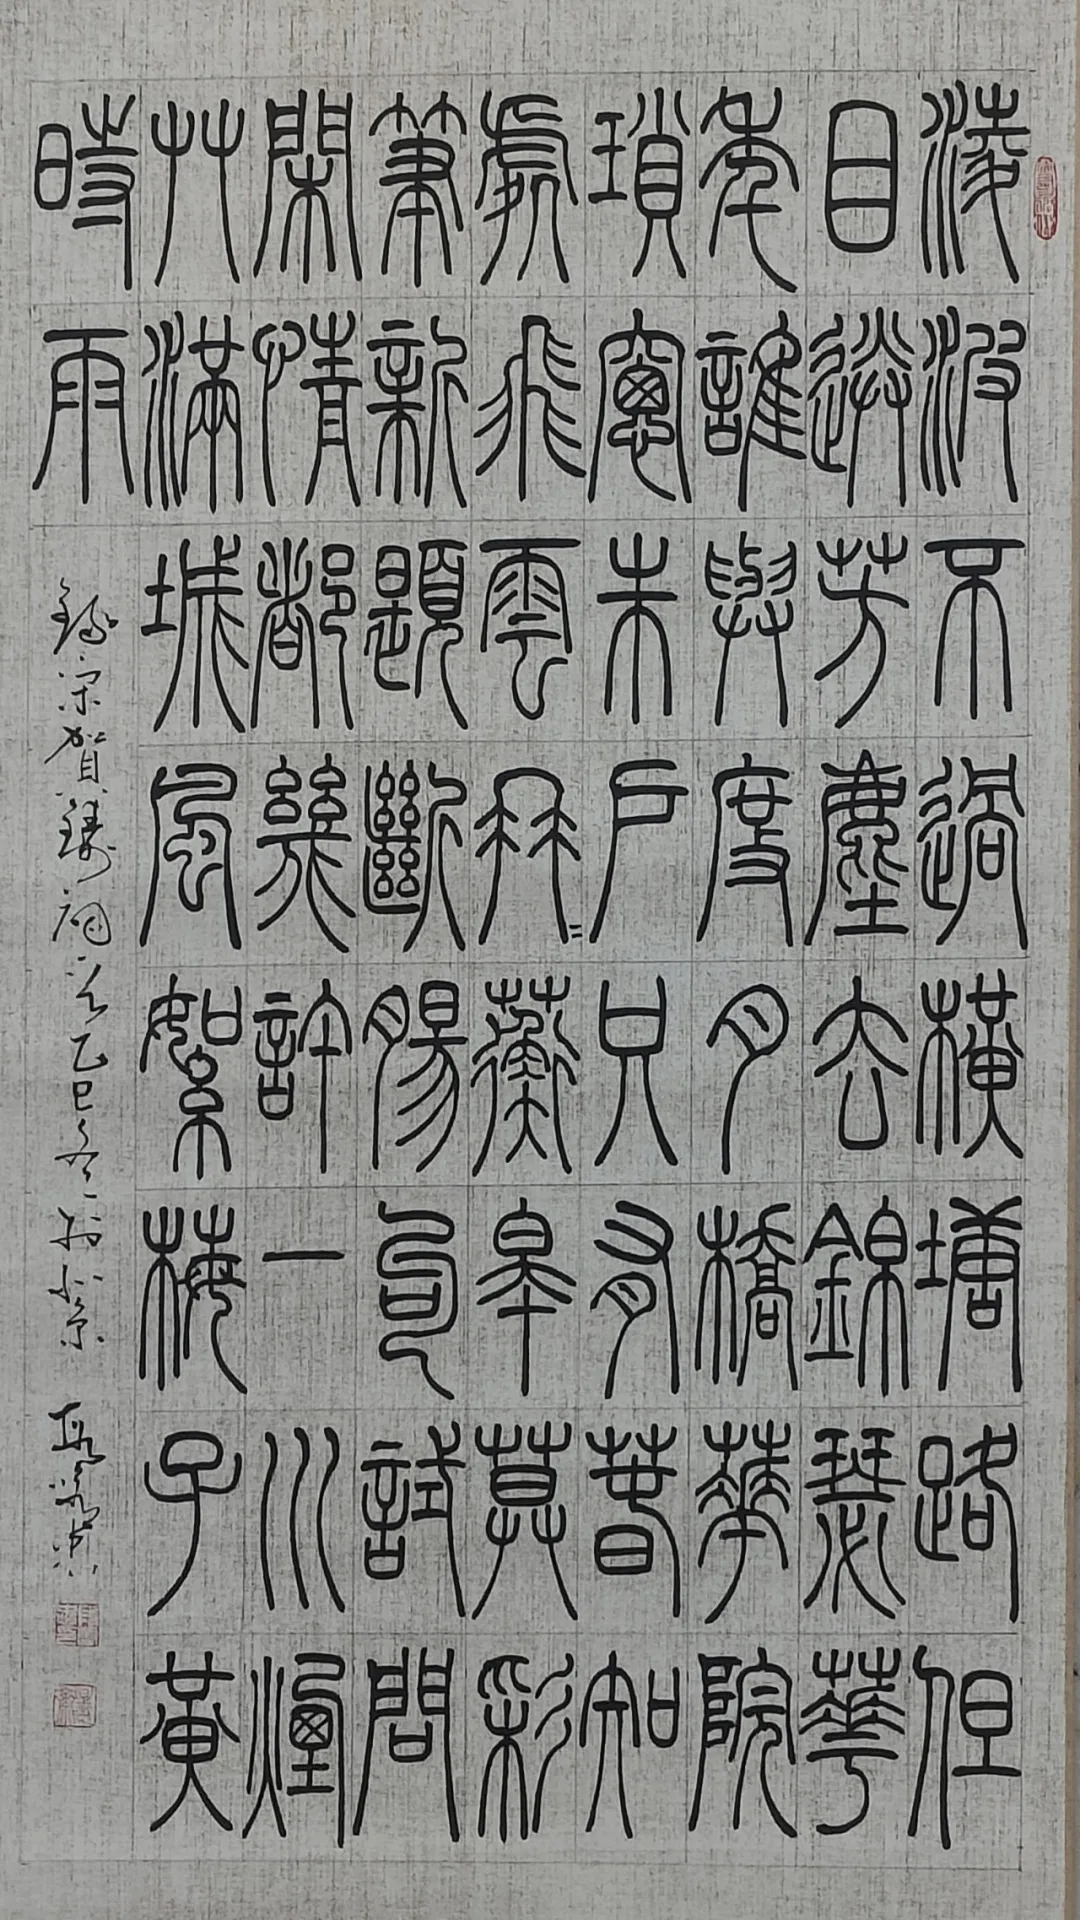 淩波不過橫塘路但
目送芳塵去錦瑟華
年誰與度月橋華院
瑣窗朱戶只有春知
處飛雲冉=蘅皋莫彩
筆新題斷腸句試問
閑情都幾許一川煙
艸滿城風絮梅子黃
時雨
錄宋賀鑄詞一首乙巳冬於北京